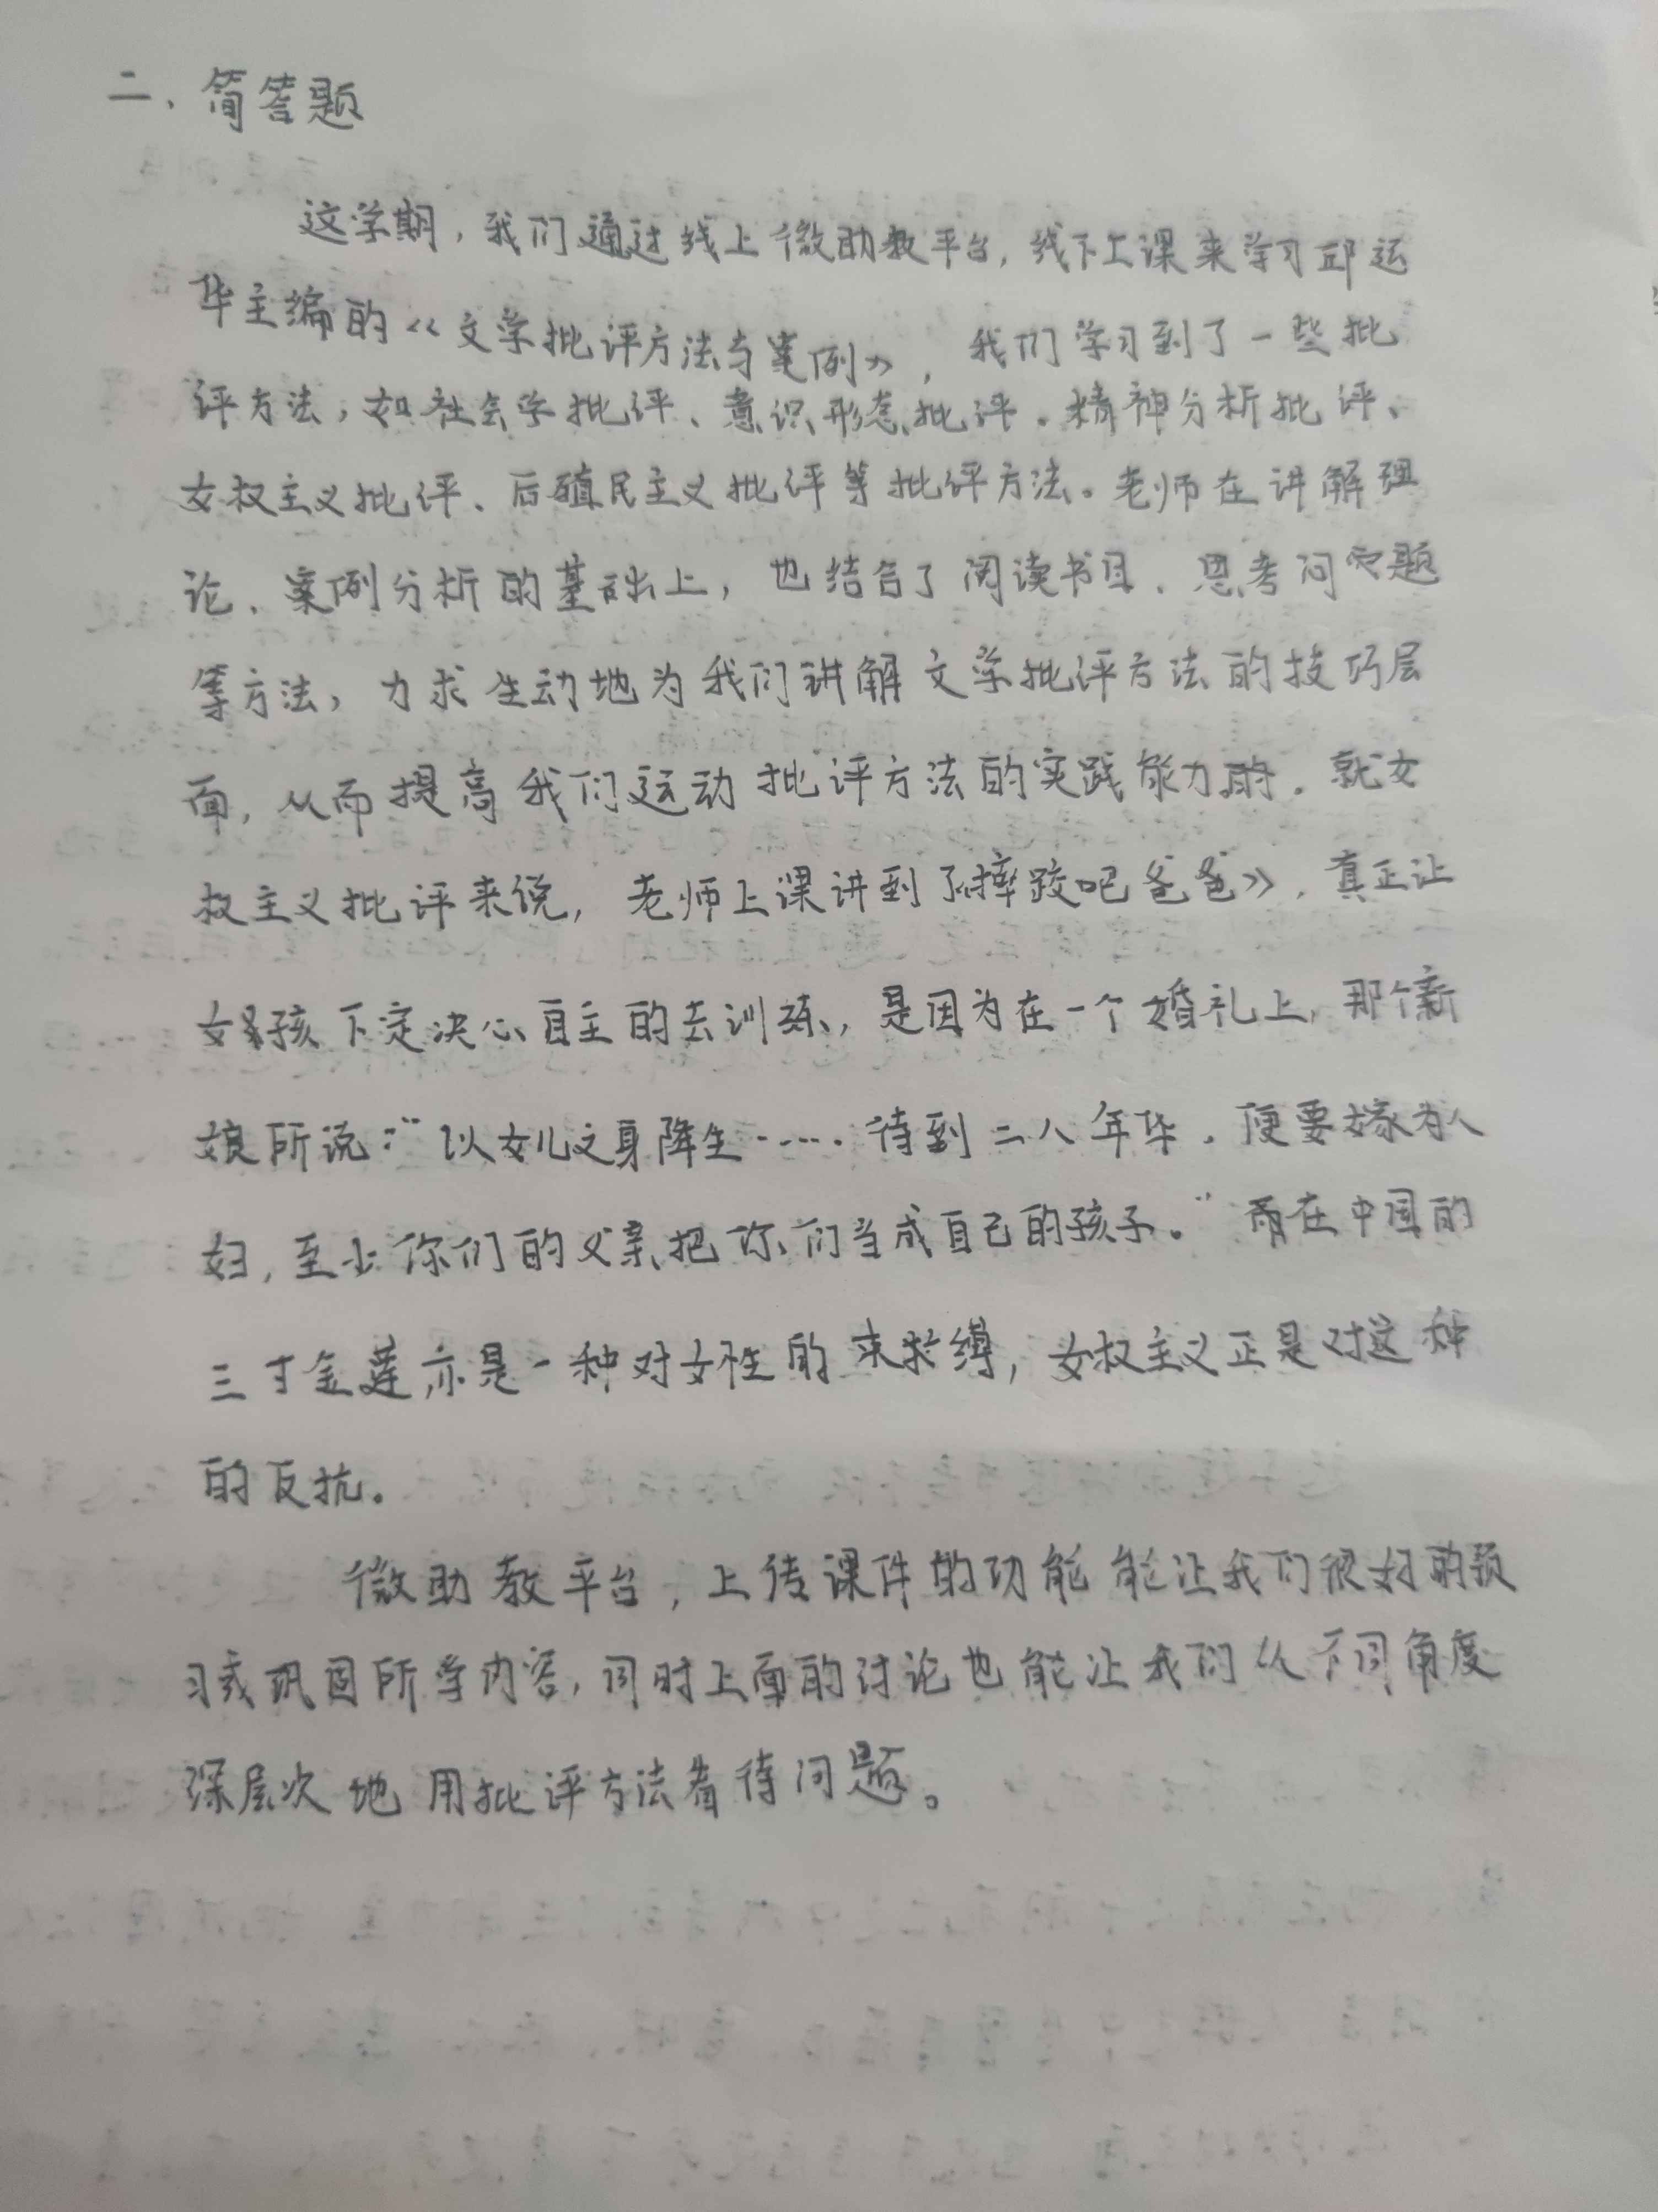 二、简答题
这学期，我们通过线上微助教平台，线下上课来学习邱运
华主编的《文学批评方法与案例》，我们学习到了一些批
评方法，如社会学批评、意识形态批评。精神分析批评、
女权主义批评、后殖民主义批评等批评方法。老师在讲解理
论、案例分析的基础上，也结合了阅读书目、思考问题
等方法，力求生动地为我们讲解文学批评方法的技巧层
面，从而提高我们运动批评方法的实践能力的。就女
权主义批评来说，老师上课讲到了《摔跤吧爸爸》，真正让
女孩下定决心自主的去训练，是因为在一个婚礼上，那个新
娘所说：“以女儿之身降生……待到二八年华，便要嫁为人
妇，至少你们的父亲把你们当成自己的孩子。”而在中国的
三寸金莲亦是一种对女性的束缚，女权主义正是对这种
的反抗。
微助教平台，上传课件的功能能让我们很好的预
习或巩固所学内容，同时上面的讨论也能让我们从不同角度
深层次地用批评方法看待问题。